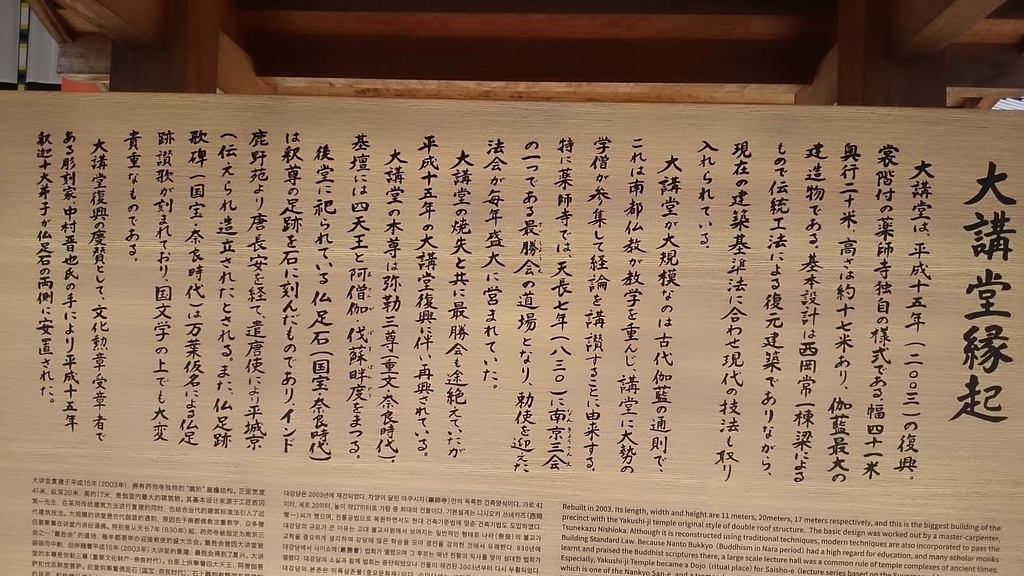 大講堂縁起
大講堂は、平成十五年(二〇〇三)の復興。
裳階付の薬師寺独自の様式である。幅四十一米
奥行二十米、高さは約十七米あり、伽藍最大の
建造物である。基本設計は西岡常一棟梁による
もので伝統工法による復元建築でありながら、
現在の建築基準法に合わせ現代の技法も取り
入れられている。
大講堂が大規模なのは古代伽藍の通則で、
これは南都仏教が教学を重んじ、講堂に大勢の
学僧が参集して経論を講讃することに由来する。
特に薬師寺では、天長七年(八三〇)に南京三会
の一つである最勝会の道場となり、勅使を迎えた
法会が毎年盛大に営まれていた。
大講堂の焼失と共に最勝会も途絶えていたが
平成十五年の大講堂復興に伴い再興されている。
大講堂の本尊は弥勒三尊(重文・奈良時代)。
基壇には四天王と阿僧伽・伐蘇畔度をまつる。
後堂に祀られている仏足石(国宝・奈良時代)
は釈尊の足跡を石に刻んだものであり、インド
鹿野苑より唐長安を経て、遣唐使により平城京
へ伝えられ造立されたとされる。また、仏足跡
歌碑(国宝・奈良時代)は万葉仮名による仏足
跡讃歌が刻まれており、国文学の上でも大変
貴重なものである。
大講堂復興の慶賛として、文化勲章受章者で
ある彫刻家、中村晋也氏の手により平成十五年
釈迦十大弟子が仏足石の両側に安置された。
大讲堂复建于平成15年(2003年)、拥有药师寺独特的"裳阶"屋檐结构。正面宽度
41米,纵深20米,高约17米,是伽蓝内最大的建筑物。其基本设计来源于工匠西冈
常一先生,在采用传统建筑方法进行复建的同时,也结合当代的建筑标准法引入了近
代建筑技法。大规模的讲堂是古代伽蓝的通则,
대강당은 2003년에 재건되었다. 차양이 달린 야쿠시지(藥師寺)만의 독특한 건축양식이다. 가로 41
미터, 세로 20미터, 높이 약17미터로 가람 중 최대의 건물이다. 기본설계는 니시오카 쓰네카즈(西岡
Rebuilt in 2003. Its length, width and height are 11 meters, 20meters, 17 meters respectively, and this is the biggest building of the
precinct with the Yakushi-ji temple original style of double roof structure. The basic design was worked out by a master-carpenter,
Tsunekazu Nishioka. Although it is reconstructed using traditional techniques, modern techniques are also incorporated to pass the
Building Standard Law. Because Nanto Bukkyo (Buddhism in Nara period) had a high regard of education, and many scholar monks
learnt and praised the Buddhist scriptures there, a large scale lecture hall was a common rule of temple complexes of ancient times.
Especially, Yakushi-ji Temple became a Dojo (ritual place) for Saisho-e (lecture series based on the
which is one of the Nankyo San-e,